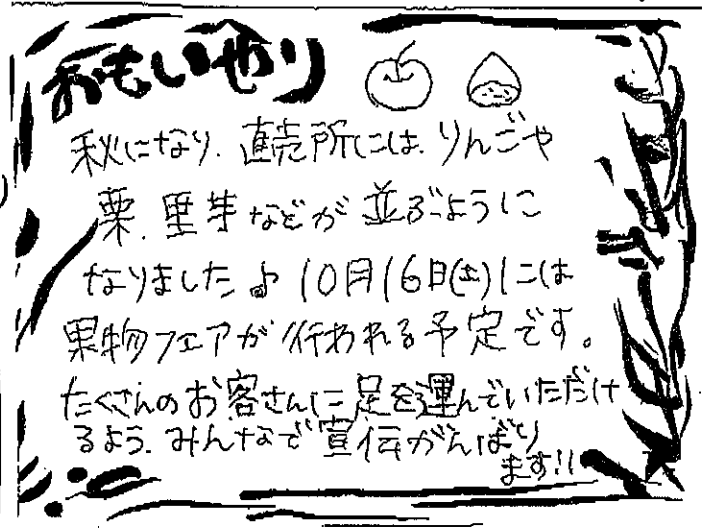 おもいやり
秋になり、直売所には、りんごや
栗、里芋などが並ぶように
なりました♪10月16日(土)には
果物フェアが行われる予定です。
たくさんのお客さんに足を運んでいただけ
るよう、みんなで宣伝がんばり
ます!!